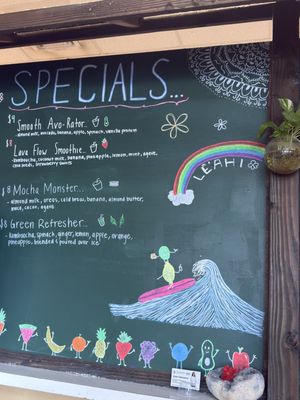 SPECIALS...
$9 Smooth Avo-Rator..
- almond milk, avocado, banana, apple, spinach, vanilla protein
$8 Love Flow Smoothie..
- kombucha, coconut milk, banana, pineapple, lemon, mint, agave,
chia seeds, strawberry swirls
LEAHI
$8 Mocha Monster...
- almond milk, oreos, cold brew, banana, almond butter,
maca, cacao, agave
$8 Green Refresher..
- kombucha, spinach, ginger, lemon, apple, orange,
pineapple, blended & poured over ice